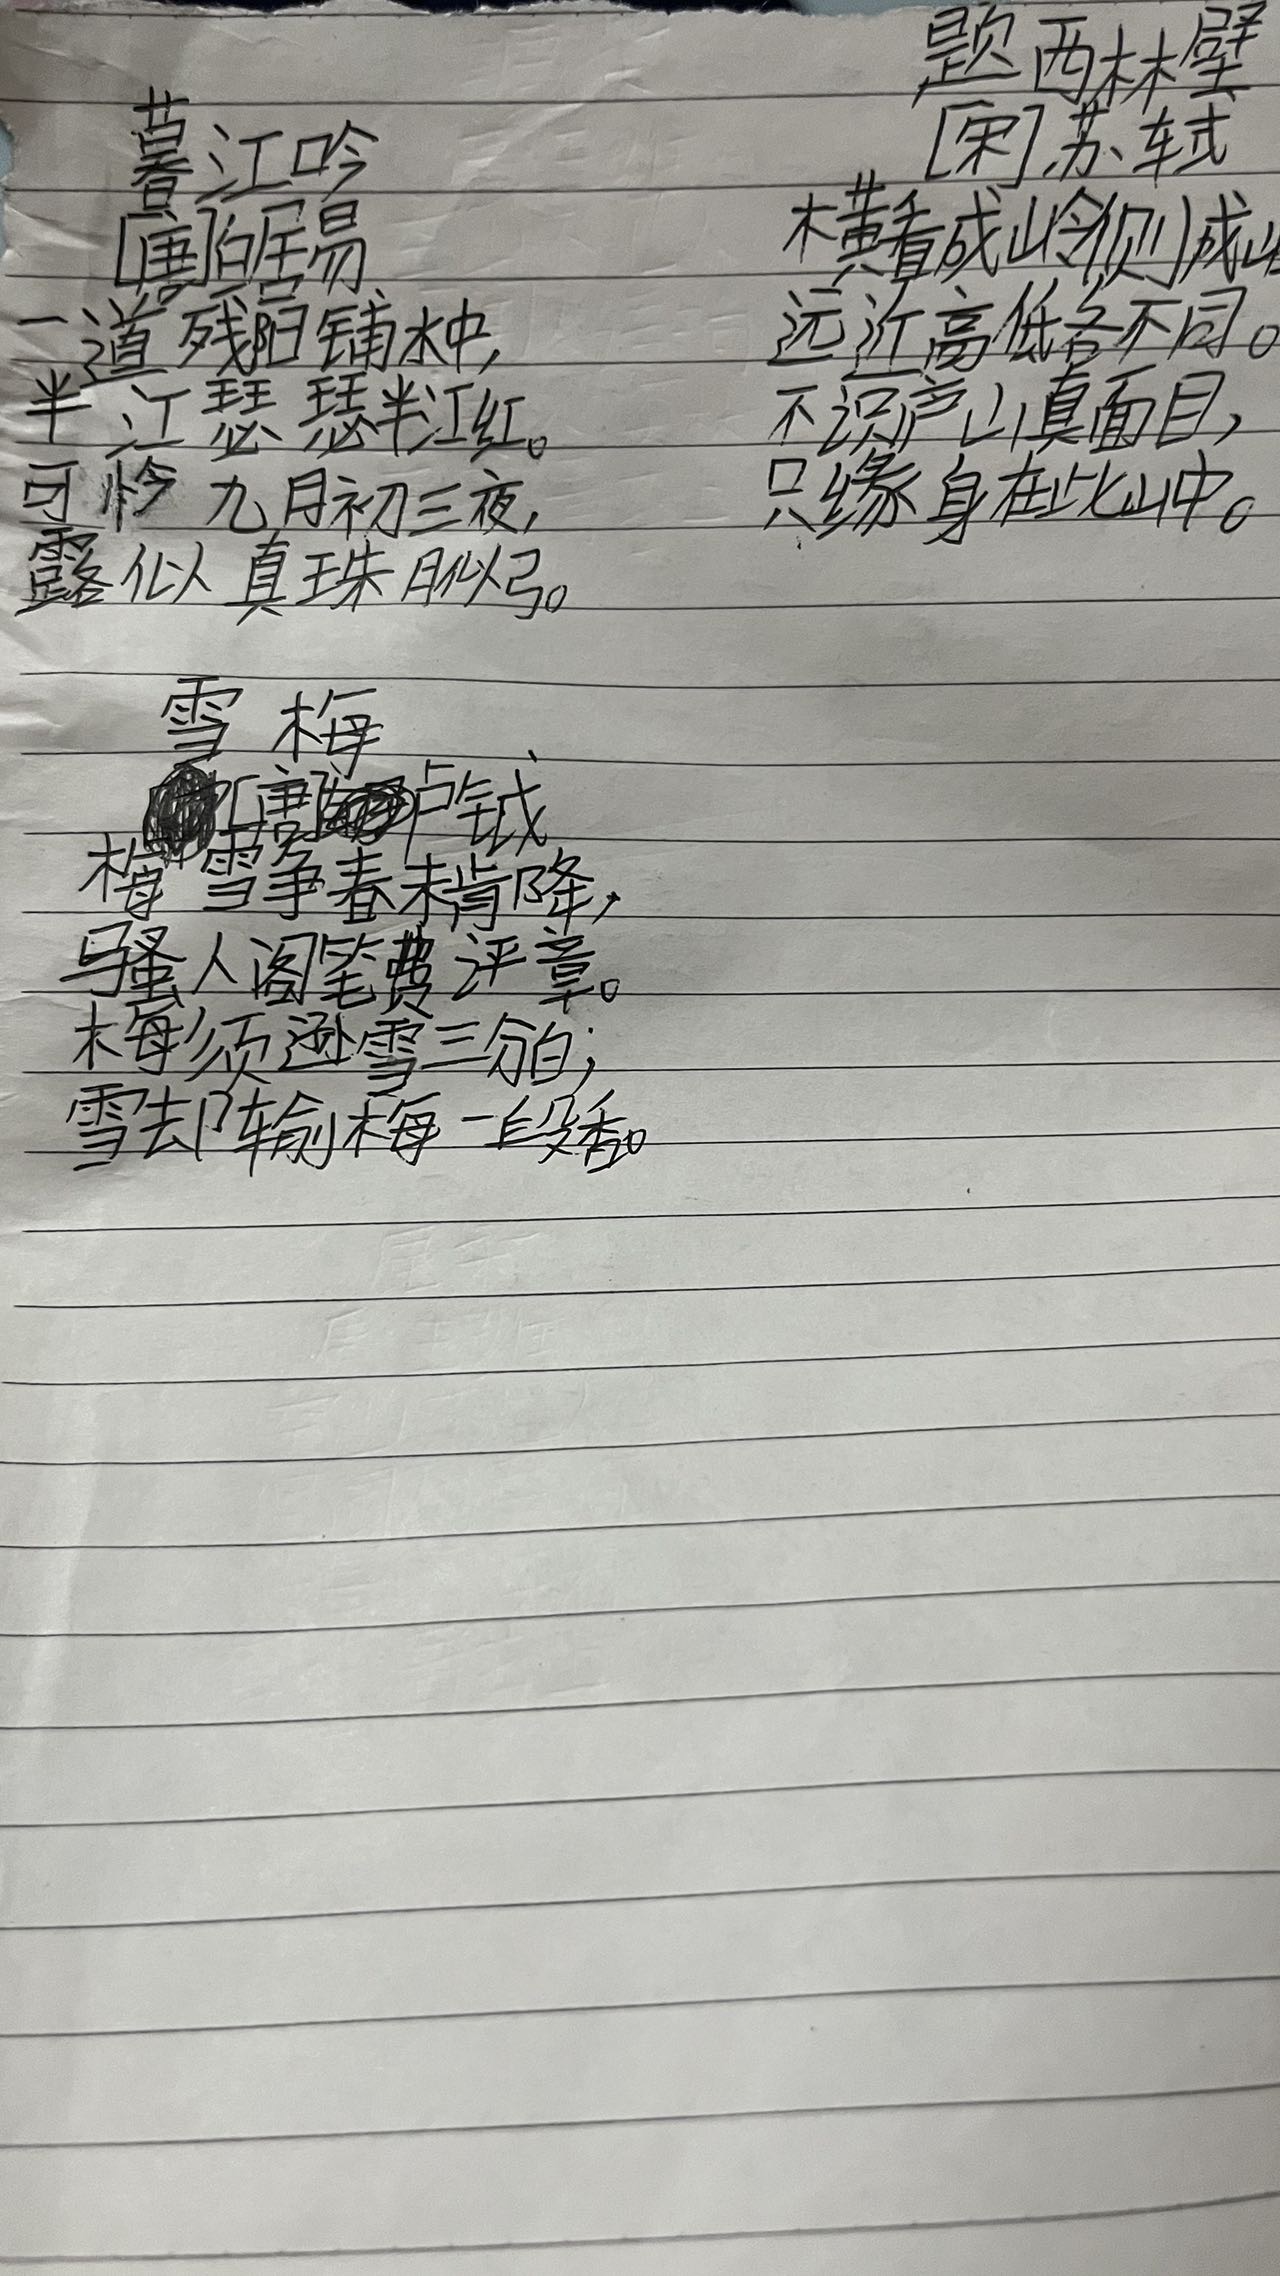 暮江吟
[唐]白居易
一道残阳铺水中,
半江瑟瑟半江红。
可怜九月初三夜,
露似真珠月似弓。
雪梅
[唐]卢钺
梅雪争春未肯降,
骚人阁笔费评章。
梅须逊雪三分白;
雪却输梅一段香。
题西林壁
[宋]苏轼
横看成岭侧成
远近高低各不同。
不识庐山真面目,
只缘身在此山中。